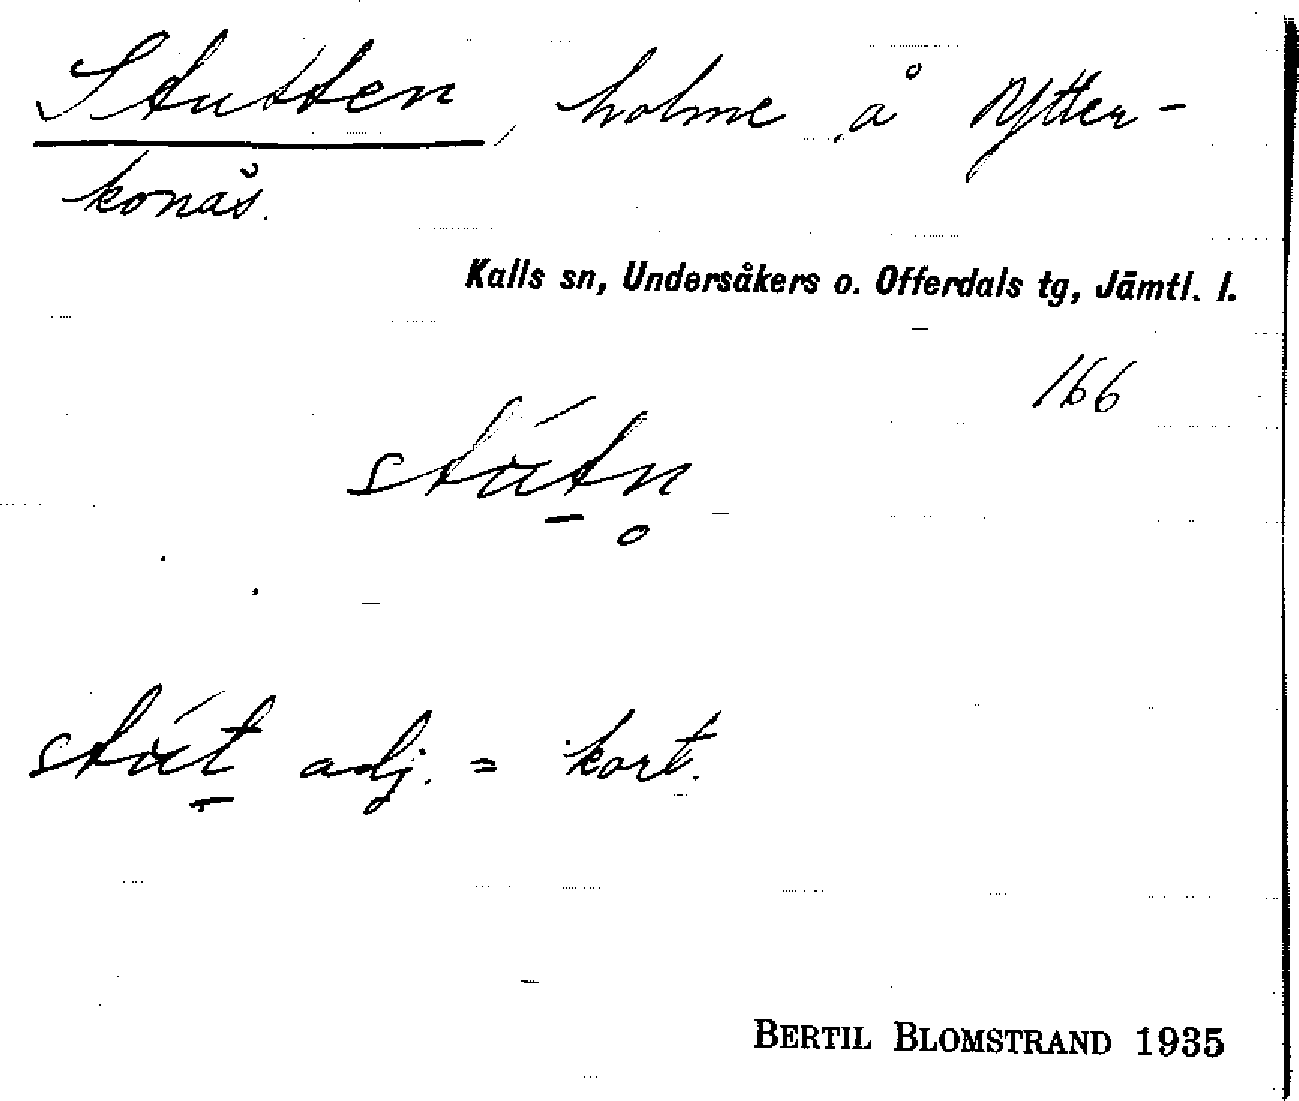 Stutten, holme å Ytter-
konäs.
Kalls sn, Undersåkers o. Offerdals tg, Jämtl. l.
166
stút̲n̥
stút̲ adj. = kort.
BERTIL BLOMSTRAND 1935